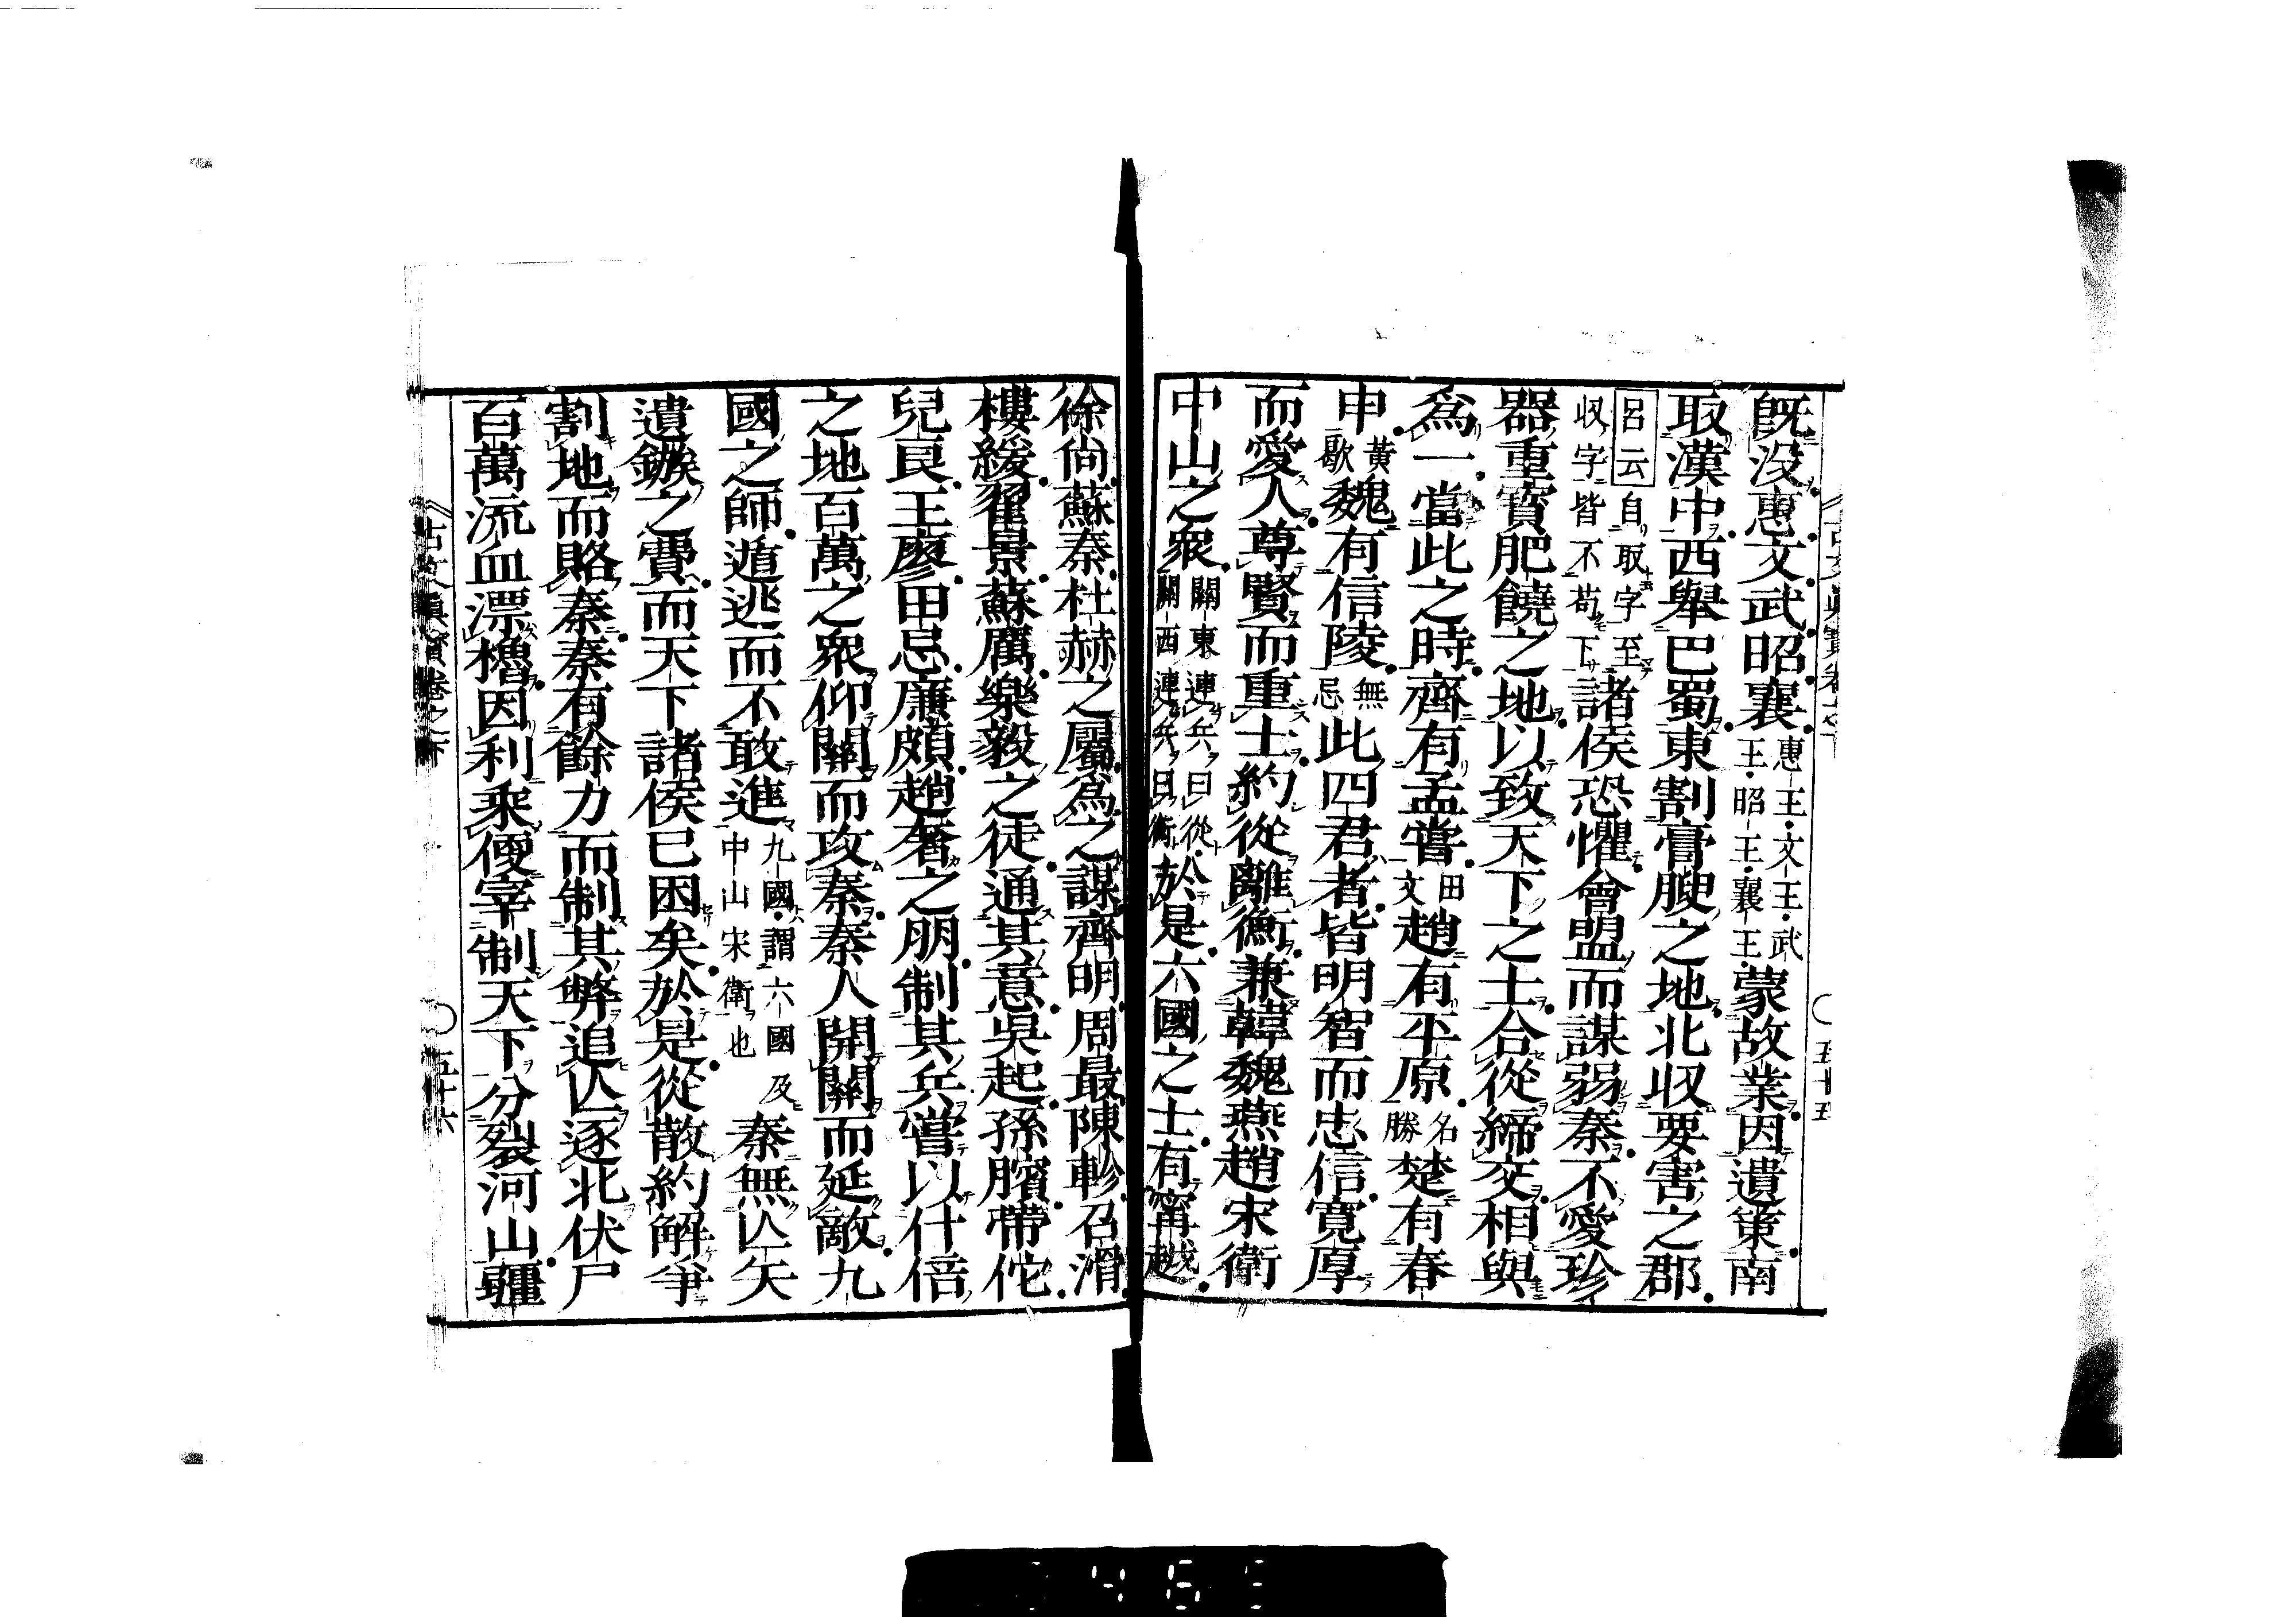 既没惠文武昭襄惠王文王武王昭王襄王蒙故業因遺策南
取漢中西舉巴蜀東割膏腴之地北収要害之郡
呂云自取字至収字皆不苟下諸侯恐懼會盟而謀弱秦不愛珍
器重寳肥饒之地以致天下之士合從締交相與
爲一當此之時齊有孟嘗田文趙有平原名勝楚有春
申黃歇魏有信陵無忌此四君者皆明智而忠信寬厚
而愛人尊賢而重士約從離衡兼韓魏燕趙宋衛
中山之衆關東連兵曰從關西連兵曰衡於是六國之士有甯越
徐尙蘇秦杜赫之屬爲之謀齊明周最陳軫召滑
樓緩翟景蘇厲樂毅之徒通其意吳起孫臏帶佗
兒良王廖田忌廉頗趙奢之朋制其兵嘗以什倍
之地百萬之衆仰關而攻秦秦人開關而延敵九
國之師遁逃而不敢進九國謂六國及中山宋衛也秦無亾矢
遺鏃之費而天下諸侯已困矣於是從散約解爭
割地而賂秦秦有餘力而制其弊追亾逐北伏尸
百萬流血漂櫓因利乘便宰制天下分裂河山彊
古文眞寳卷之下
五十六